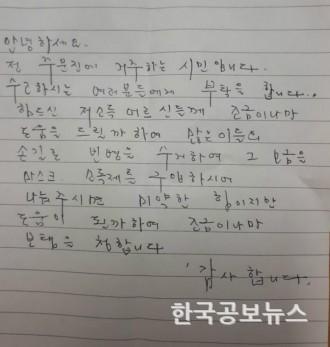 안녕하세요.
전 주문진에 거주하는 시민입니다.
수고하시는 여러분들에게 부탁을 합니다.
힘드신 저소득 어르신들께 조금이나마
도움을 드릴까 하여 많은이들의
손길로 빈병을 수거하여 그 모금을
마스크 소독제를 구입하시어
나눠주시면 미약한 힘이지만
도움이 될까하여 조금이나마
보탬을 청합니다
감사 합니다.
한국공보뉴스